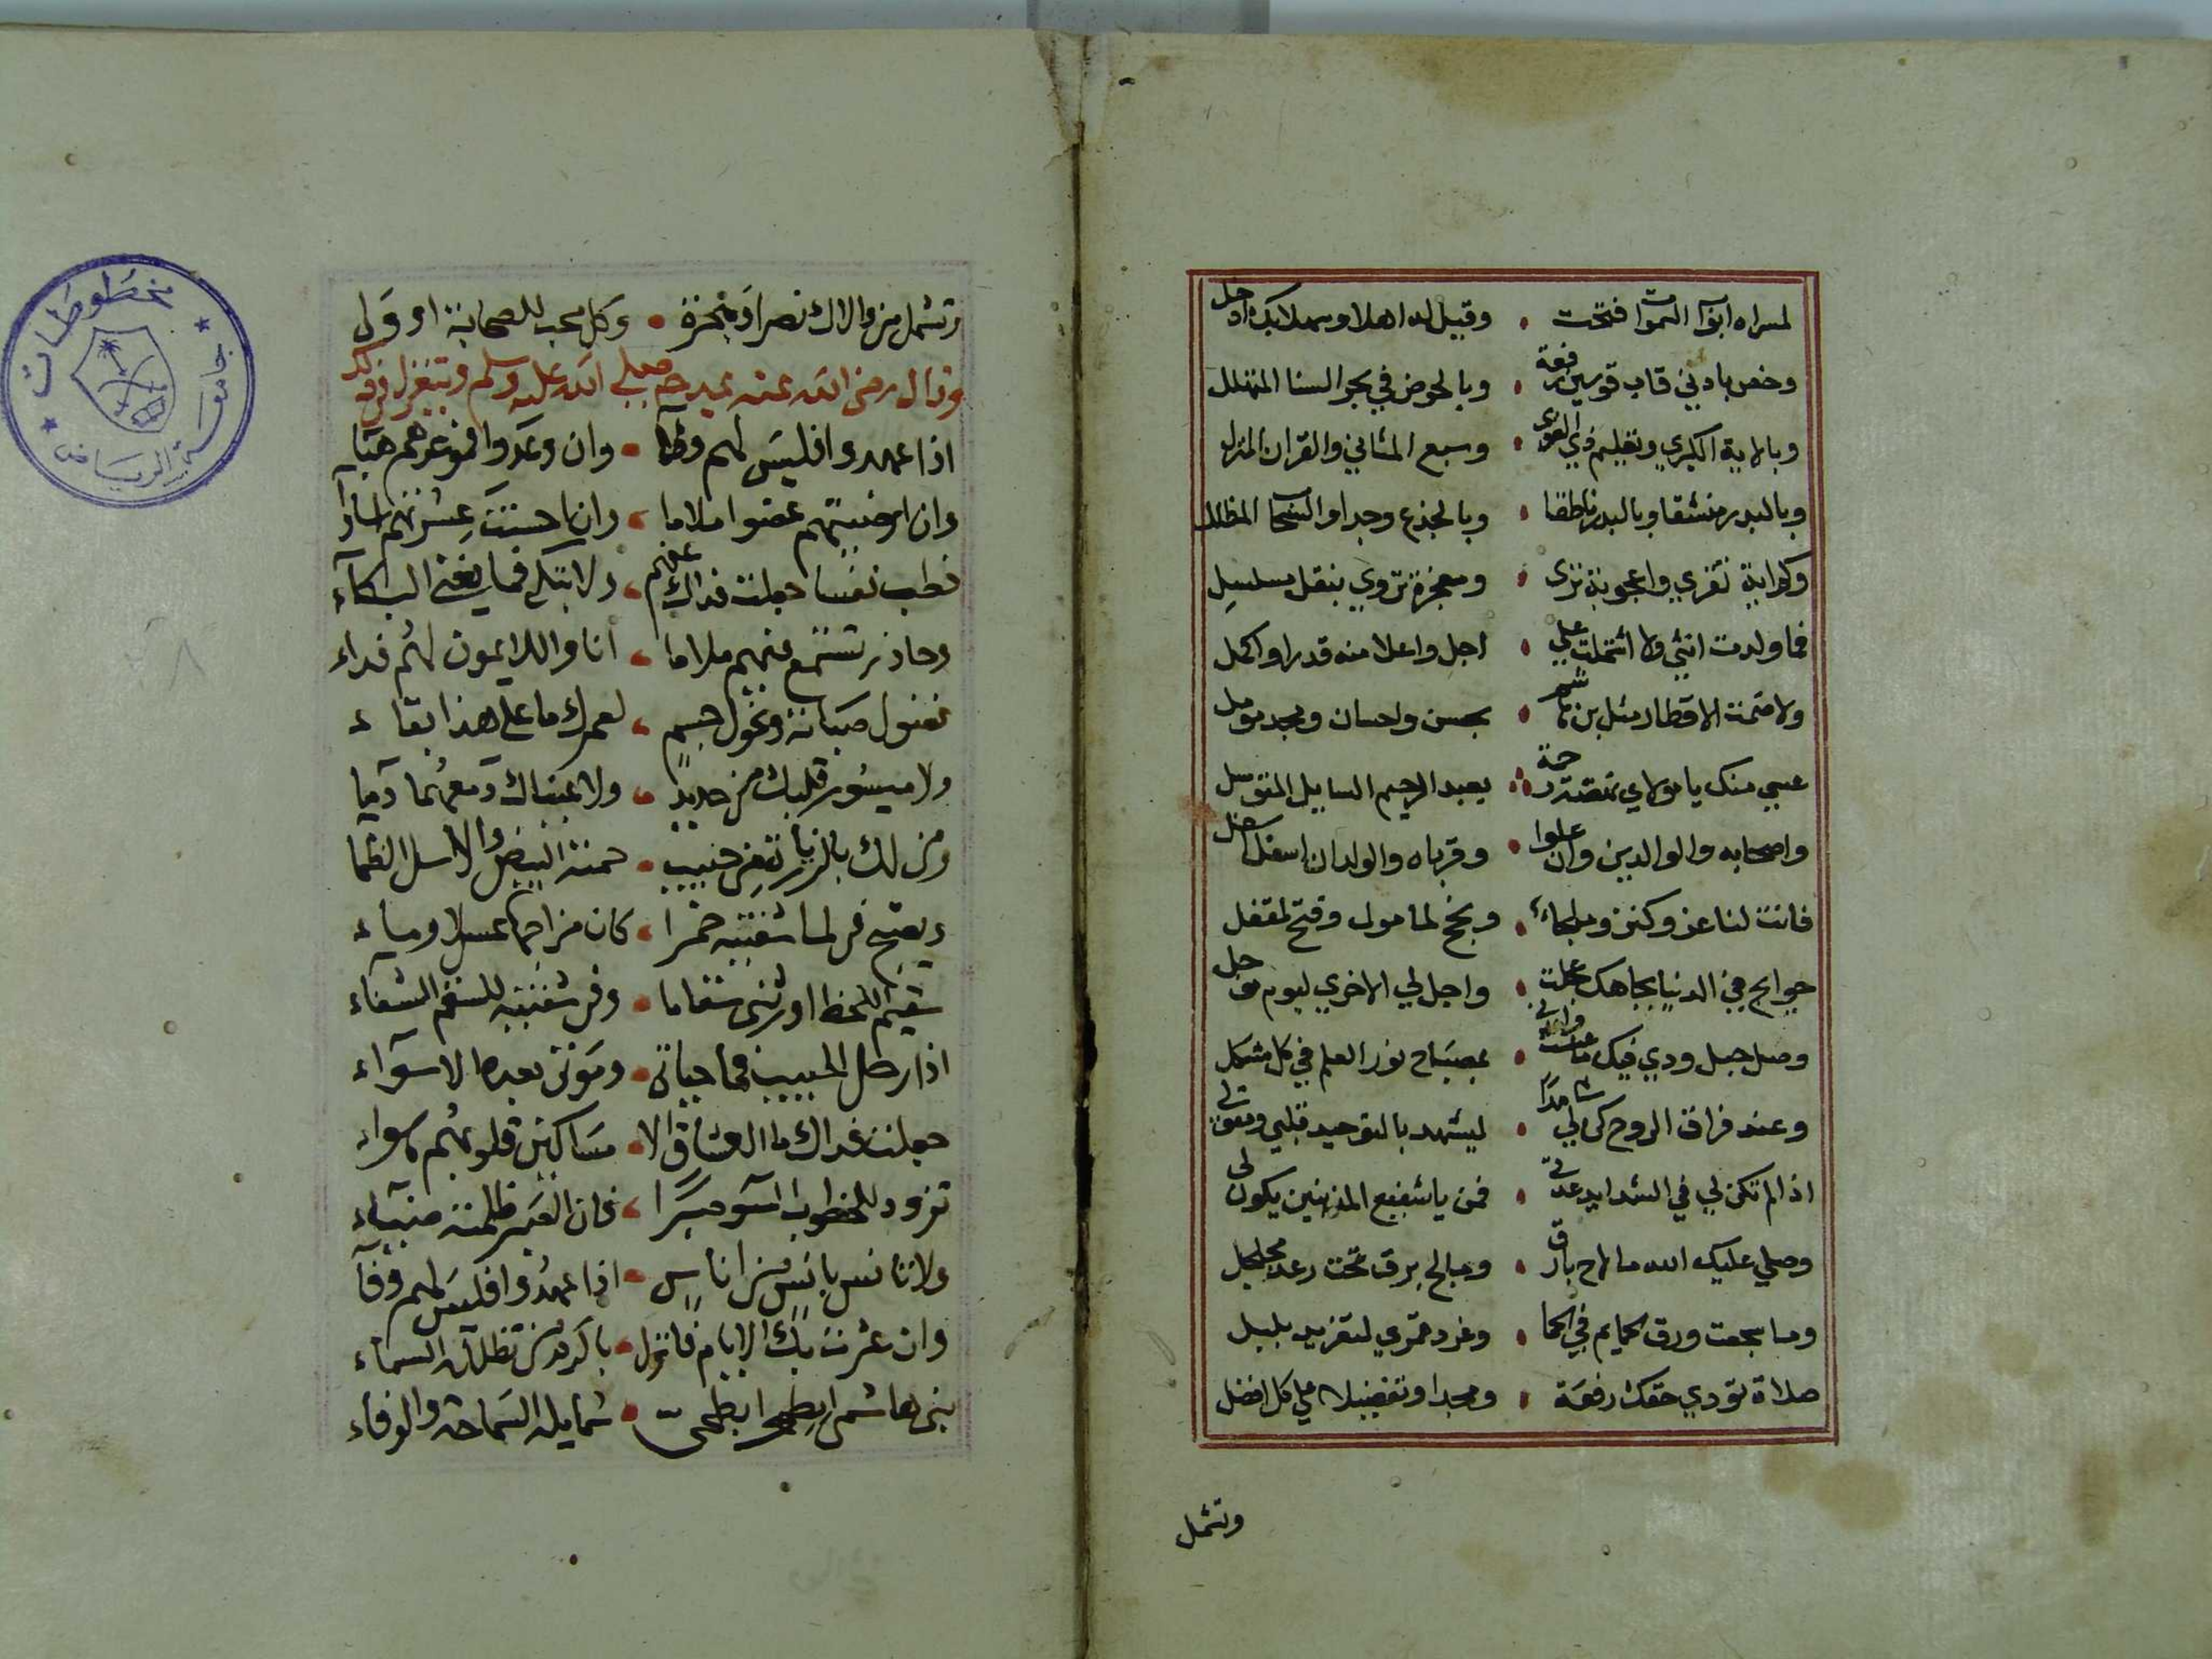 لمسراه ابواب السموات فتحت • وقيل له اهلا وسهلا بك ادخل
وخص بادني قاب قوسين رفعة • وبالحوض في بحر السنا المتهلل
وبالاية الكبري وتعليم ذي القوى • وسبع المثاني والقران المنزل
وبالبدر منشقا وبالبدر ناطقا • وبالجذع وجدا والسحاب المظلل
وكم اية تقري واعجوبة تري • ومعجزة تروي بنقل مسلسل
فما ولدت انثي ولا اشتملت علي • اجل واعلا منه قدرا واكمل
ولا ضمت الاقطار مثل بن هاشم • بحسن واحسان ومجد موصل
عسي منك يا مولاي تقتد رحمة • بعبد الرحيم السايل المتوسل
واصحابه والوالدين وان علوا • وقرباه والولدان اسفل اسفل
فانت لنا عز وكنز وملجاء • ونجح لمامول وفتح لمقفل
حوايجي في الدنيا بجاهك عجلت • واجل لي الاخري ليوم مؤجل
وصل حبل ودي فيك • بمصباح نور العلم في كل مشكل
وعند فراق الروح كن لي شاهدا • ليشهد بالتوحيد قلبي ومقولي
اذا لم تكن لي في الشدايد عدتي • فمن يا شفيع المذنبين يكون لي
وصلي عليك الله ما لاح بارق • وما لج برق تحت رعد مجلجل
وما سجعت ورق الحمايم في الحما • وغرد قمري لتغريد بلبل
صلاة تؤدي حقك رفعة • ومجدا وتفضيلا علي كل افضل
وتشمل
وتشمل من والاك نصرا ونجزة • وكل محب للصحابة او ولي
وقال رضي الله عنه يمدحه صلى الله عليه وسلم ويتغزل في ذلك
اذا عهدوا فليس لهم وفآ • وان وعدوا فموعدهم هبآ
وان ارضيتهم غضبوا ملاما • وان احسنت عشرتهم اساؤا
فطب نفسا جعلت فداك عنهم • ولا تبكي فما يغني البكآء
وحاذر تستمع فيهم ملاما • انا والله لايمون لهم فداء
نغنول صبابة ونحول جسم • لعمرك ما على هذا بقاء
ولا ميسور قلبك من حديد • ولا عيناك دمعهما دما
ومن لك بالزيارة من حبيب • حمته البيض والاسل الظما
ويصبح في لما شفتيه خمرا • كان مزاجها عسلا وماء
سقيم اللحظ اورثني سقاما • وفي شفتيه للسقم الشفاء
اذا رحل الحبيب فما حياتي • وموتي بعده الا سوآء
جعلت فداك ما العشاق الا • مساكين قلوبهم هواء
تزود للخطوب السود صبرا • فان الصبر ظلمته ضيآء
ولا تانس بانس من اناس • اذا عهدوا فليس لهم وفآ
وان عثرت بك الايام فانزل • باكرم من تظللآه السماء
نبى هاشمى ابطحى ابطحى • شمايله السماحة والوفاء
مخطوطات
جامعة الرياض